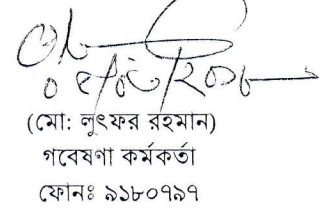 (মো: লুৎফর রহমান)
গবেষণা কর্মকর্তা
ফোনঃ ৯১৮০৭৯৭